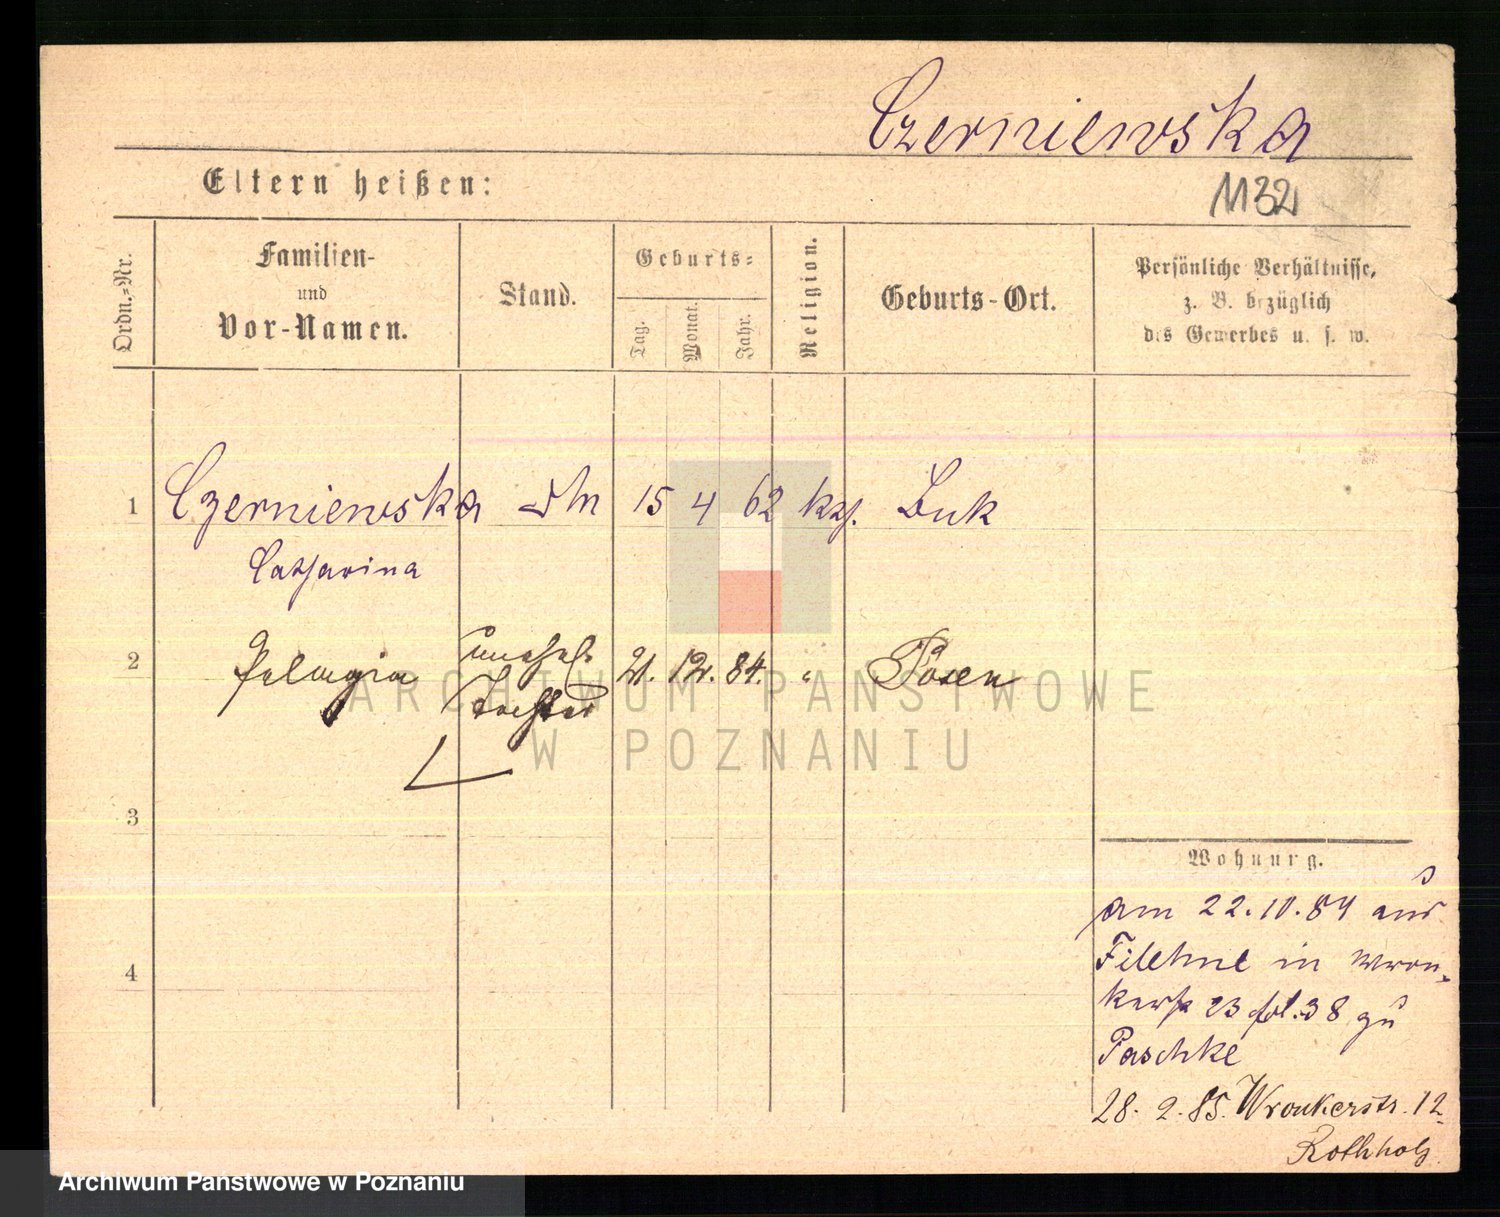 Czerniewska
Eltern heißen:
1132
Ordn.-Nr.
Familien-
und
Vor-Namen.
Stand.
Geburts-
Tag.
Monat.
Jahr.
Religion.
Geburts-Ort.
Persönliche Verhältnisse,
z. B. bezüglich
des Gewerbes u. s. w.
1 Czerniewska 15 4 62 Buk
Catharina
2 Pelagia unehel. 21. 12. 84. " Posen
Tochter
3
4
Wohnung.
am 22.10.84 aus
Filehne in Wron-
kerstr 23 fol. 38 zu
Paschke
28. 2. 85. Wronkerstr. 12
Rothholz
ARCHIWUM PAŃSTWOWE
W POZNANIU
Archiwum Państwowe w Poznaniu